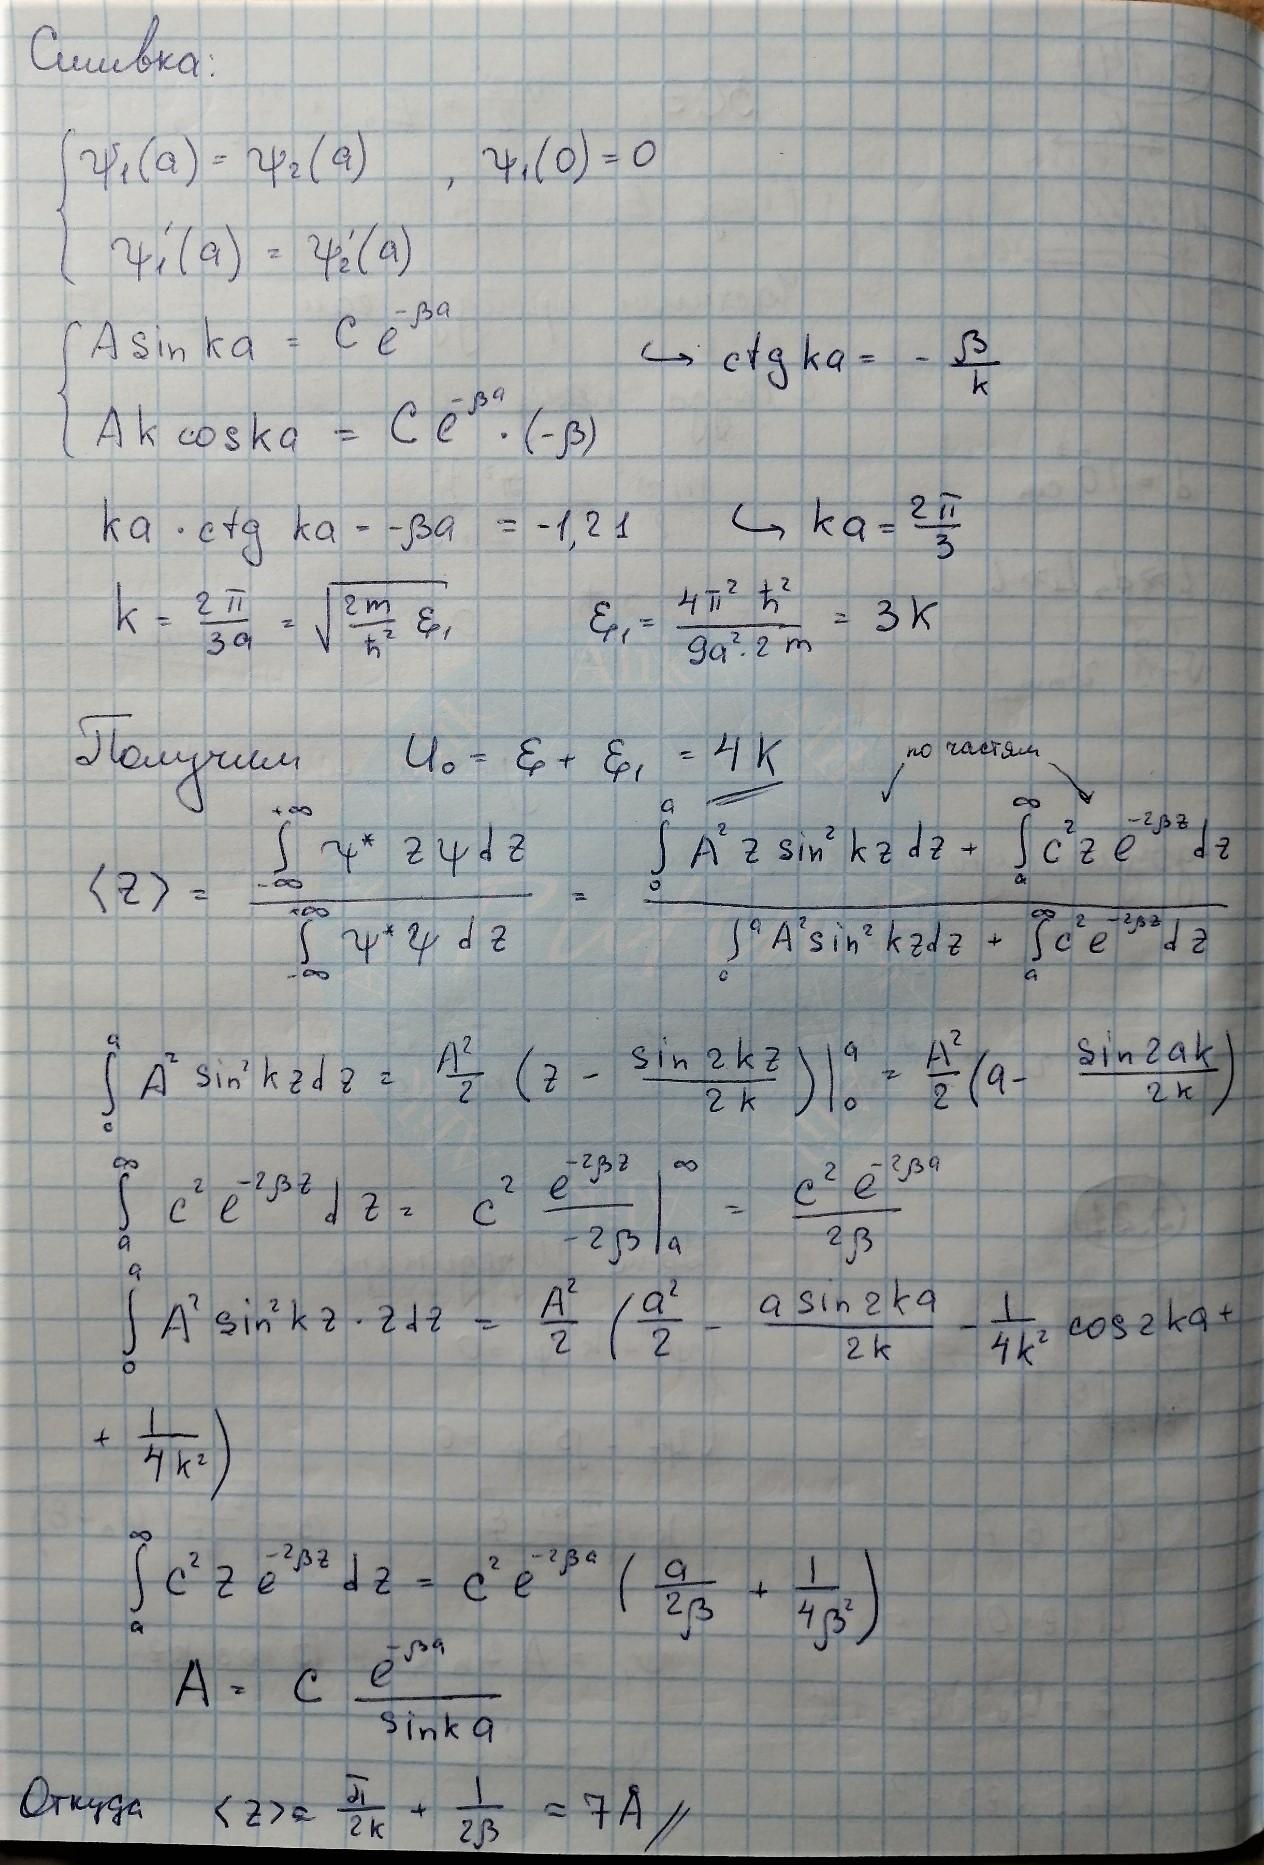 Сшивка:
ψ₁(a) = ψ₂(a) , ψ₁(0) = 0
ψ₁'(a) = ψ₂'(a)
A sin ka = C e^{-βa} ↪ ctg ka = - β/k
A k cos ka = C e^{-βa} · (-β)
ka · ctg ka = -βa = -1,21 ↪ ka = 2π/3
k = 2π/3a = √(2m/ħ² ε₁) ε₁ = 4π² ħ²/9a²·2m = 3K
Получим U₀ = ε + ε₁ = 4K по частям
⟨z⟩ = ∫_{-∞}^{+∞} ψ* z ψ dz / ∫_{-∞}^{+∞} ψ* ψ dz = (∫_0^a A² z sin² kz dz + ∫_a^∞ c² z e^{-2βz} dz) / (∫_0^a A² sin² kz dz + ∫_a^∞ c² e^{-2βz} dz)
∫_0^a A² sin² kz dz = A²/2 (z - sin 2kz/2k)|_0^a = A²/2 (a - sin 2ak/2k)
∫_a^∞ c² e^{-2βz} dz = c² e^{-2βz}/-2β |_a^∞ = c² e^{-2βa}/2β
∫_0^a A² sin² kz · z dz = A²/2 (a²/2 - a sin 2ka/2k - 1/4k² cos 2ka +
+ 1/4k²)
∫_a^∞ c² z e^{-2βz} dz = c² e^{-2βa} (a/2β + 1/4β²)
A = C e^{-βa}/sin ka
Откуда ⟨z⟩ = π/2k + 1/2β = 7Å //